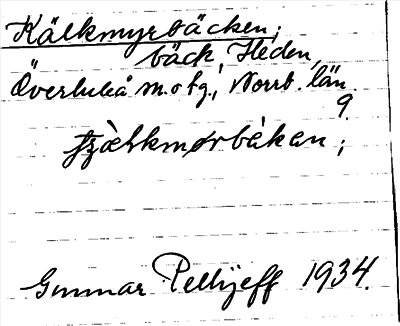 Kälkmyrbäcken;
bäck, Heden,
Överluleå sn. o tg., Norrb. län.
9
Gunnar Pellijeff 1934.